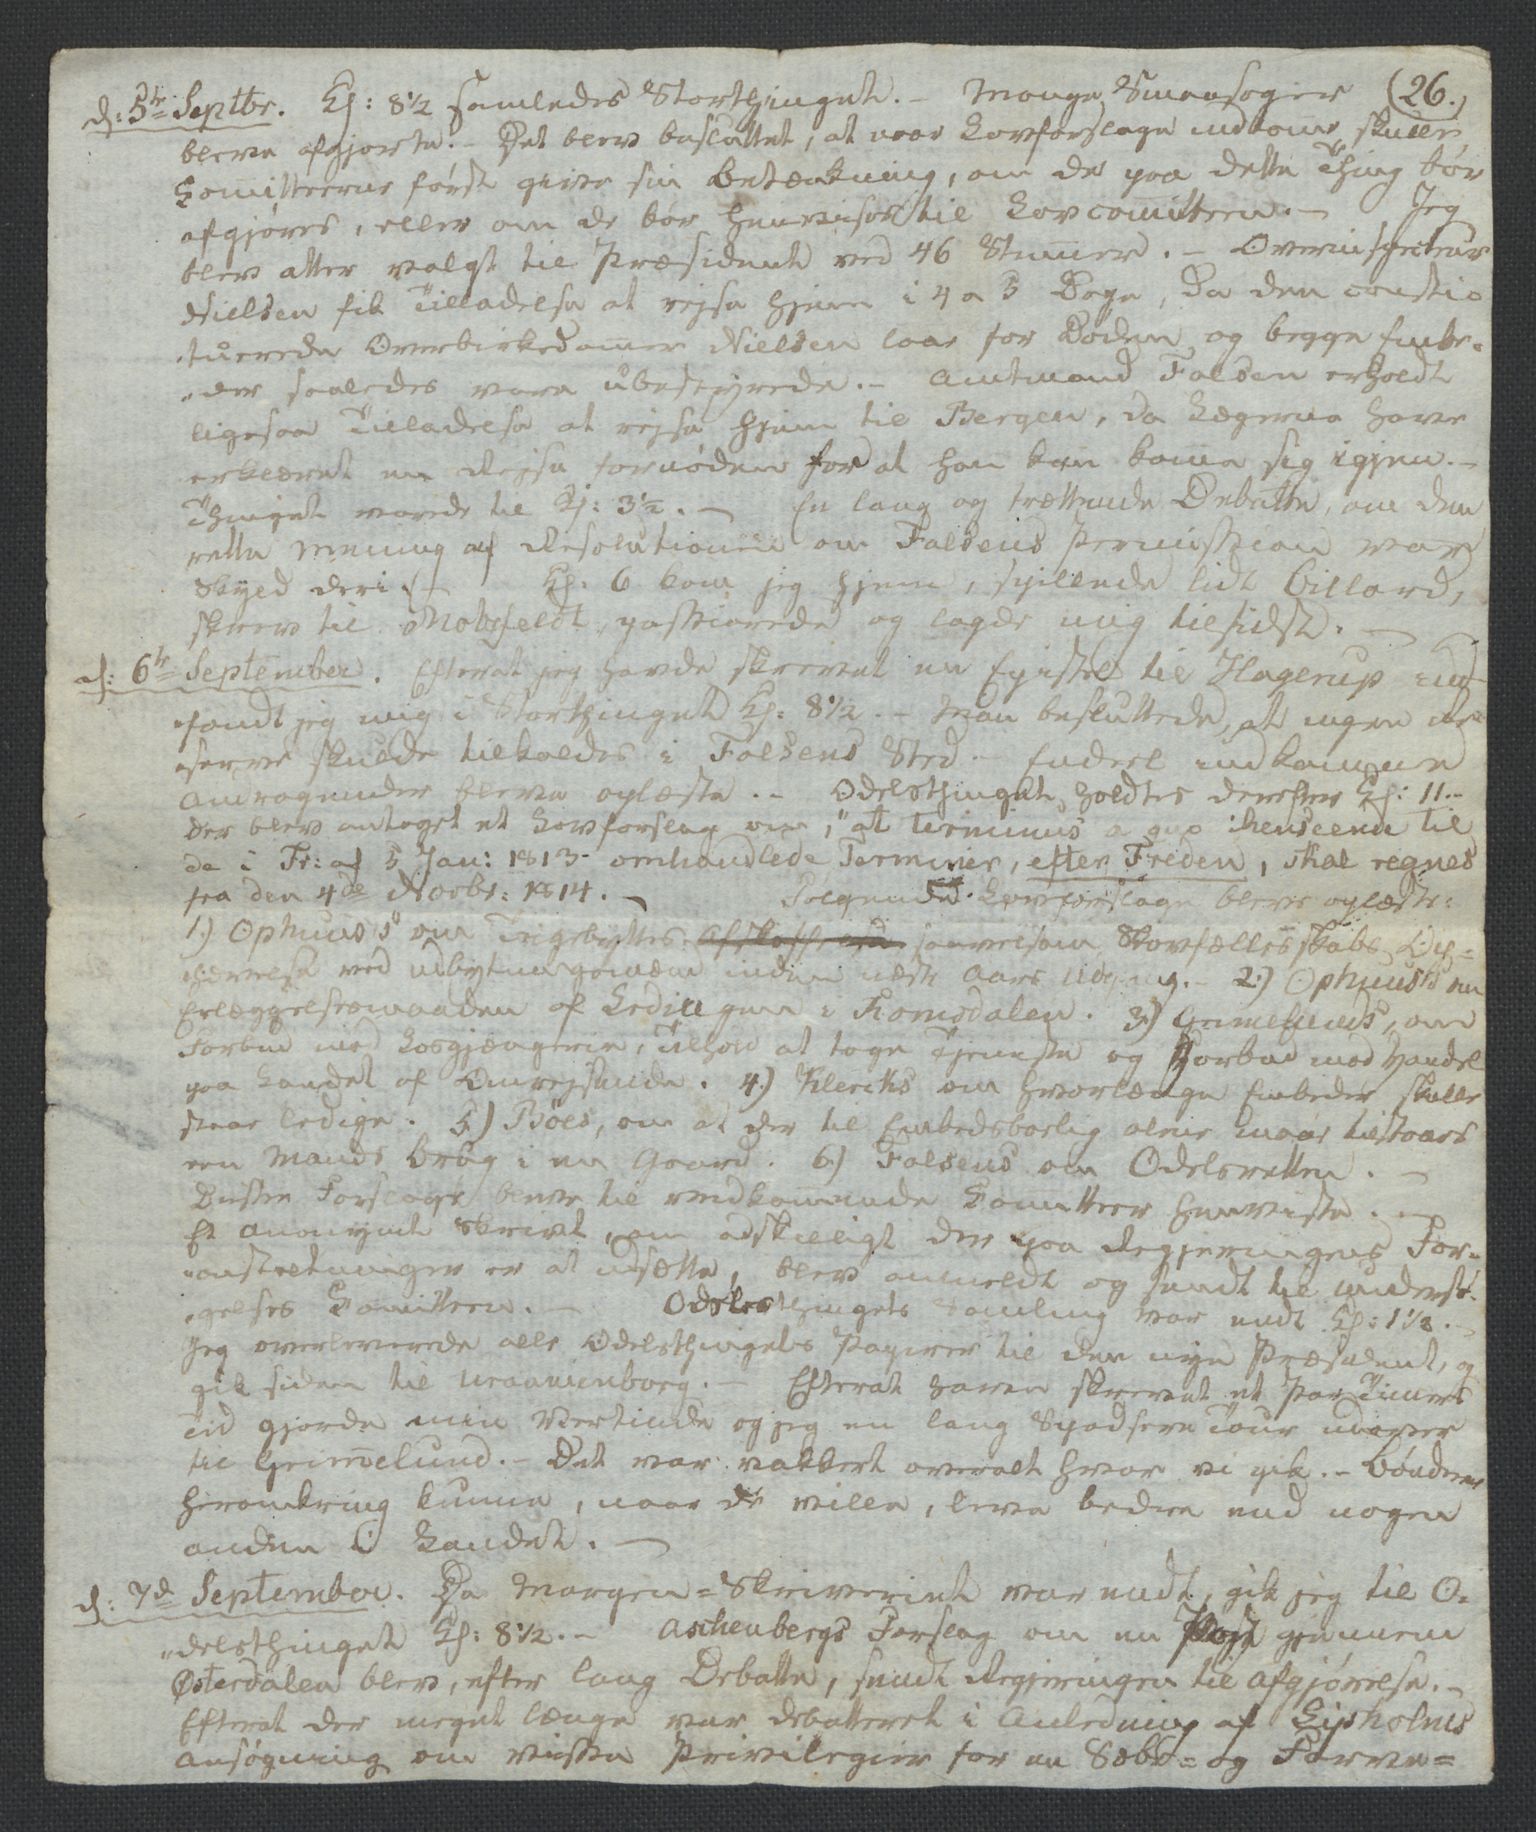 (26.)
d: 5te Septbr. Kl: 8½ samledes Storthinget. – Mange Smaasager
bleve afgjorte. – Det blev besluttet, at naar Lovforslage indkom̅e, skulle
Com̅itteerne først give sin Betænkning, om de paa dette Thing bør
afgjøres, eller om de bør henvises til Lovcom̅itteen. – Jeg
blev atter valgt til Præsident ved 46 Stem̅er. – Overinspecteur
Nielsen fik Tilladelse at rejse hjem i 4 a 5 Dage, da den consti-
tuerede Overbirkedom̅er Nielsen laae for Døden og begge Embe-
der saaledes vare ubestyrede. – Amtmand Falsen erholdt
ligesaa Tilladelse at rejse hjem til Bergen, da Lægerne have
erklæret en Rejse fornøden for at han kan kom̅e sig igjen. –
Thinget varede til Kl: 3½. – En lang og trættende Debatte, om den
rette Mening af Resolutionen om Falsens Permission var
Skyld deri. – Kl. 6 kom jeg hjem, spillede lidt Billard,
skrev til Motzfeldt, passiarede og lagde mig tilsidst. –
d: 6te September. Efterat jeg havde skrevet en Epistel til Hagerup ind-
fandt jeg mig i Storthinget Kl: 8½. – Man besluttede, at ingen Re-
serve skulde tilkaldes i Falsens Sted. – Endeel indkomne
Andragender bleve oplæste. – Odelsthinget holdtes derefter Kl: 11. –
Der blev antaget et Lovforslag om, "at terminus a quo i Henseende til
de i Fr: af 5 Jan: 1813 omhandlede Terminer, efter Freden, skal regnes
fra den 4de Novbr: 1814. – Følgende Lovforslage bleve oplæste:
1.) Ophuus's om Teigebyttes saavelsom Skovfællesskabs Op-
hævelse ved Udbytningsmænd inden næste Aars Udgang. – 2.) Ophuus's om
Erlæggelsesmaaden af Ledingen i Romsdalen. 3.) Grimelunds, om
Forbud mod Losgjængerie, Tilhold at tage Tjeneste og Forbud mod Handel
paa Landet af Omrejsende. 4.) Klercks om hvorlænge Embeder skulle
staae ledige. 5.) Böes, om at der til Embedsbolig alene maae tilstaaes
een Mands Brug i en Gaard. 6.) Falsens om Odelsretten. –
Disse Forslage bleve til vedkom̅ende Com̅itteer henviste. –
Et anonymt Skrivt, om adskilligt der paa Regjeringens For-
anstaltninger er at udsætte, blev anmeldt og sendt til Undersø-
gelses Com̅itteen. – Odelsthingets Samling var endt Kl: 1½. –
Jeg overleverede alle Odelsthingets Papirer til den nye Præsident, og
gik siden til Uraanienborg. – Efterat have skrevet et Par Timers
Tid gjorde min Værtinde og jeg en lang Spadsere Tour udover
til Grim̅elund. – Det var vakkert overalt hvor vi gik. – Bønderne
heromkring kunne, naar de ville, leve bedre end nogen
anden i Landet. –
d: 7de September. Da Morgen-Skriveriet var endt, gik jeg til O-
delsthinget Kl: 8½. – Aschenbergs Forslag om en Post gjennem
Østerdalen blev, efter lang Debatte, sendt Regjeringen til Afgjørelse. –
Efterat der meget længe var debatteret i Anledning af Gipsholms
Ansøgning om visse Privilegier for en Sæbe- og Farve-